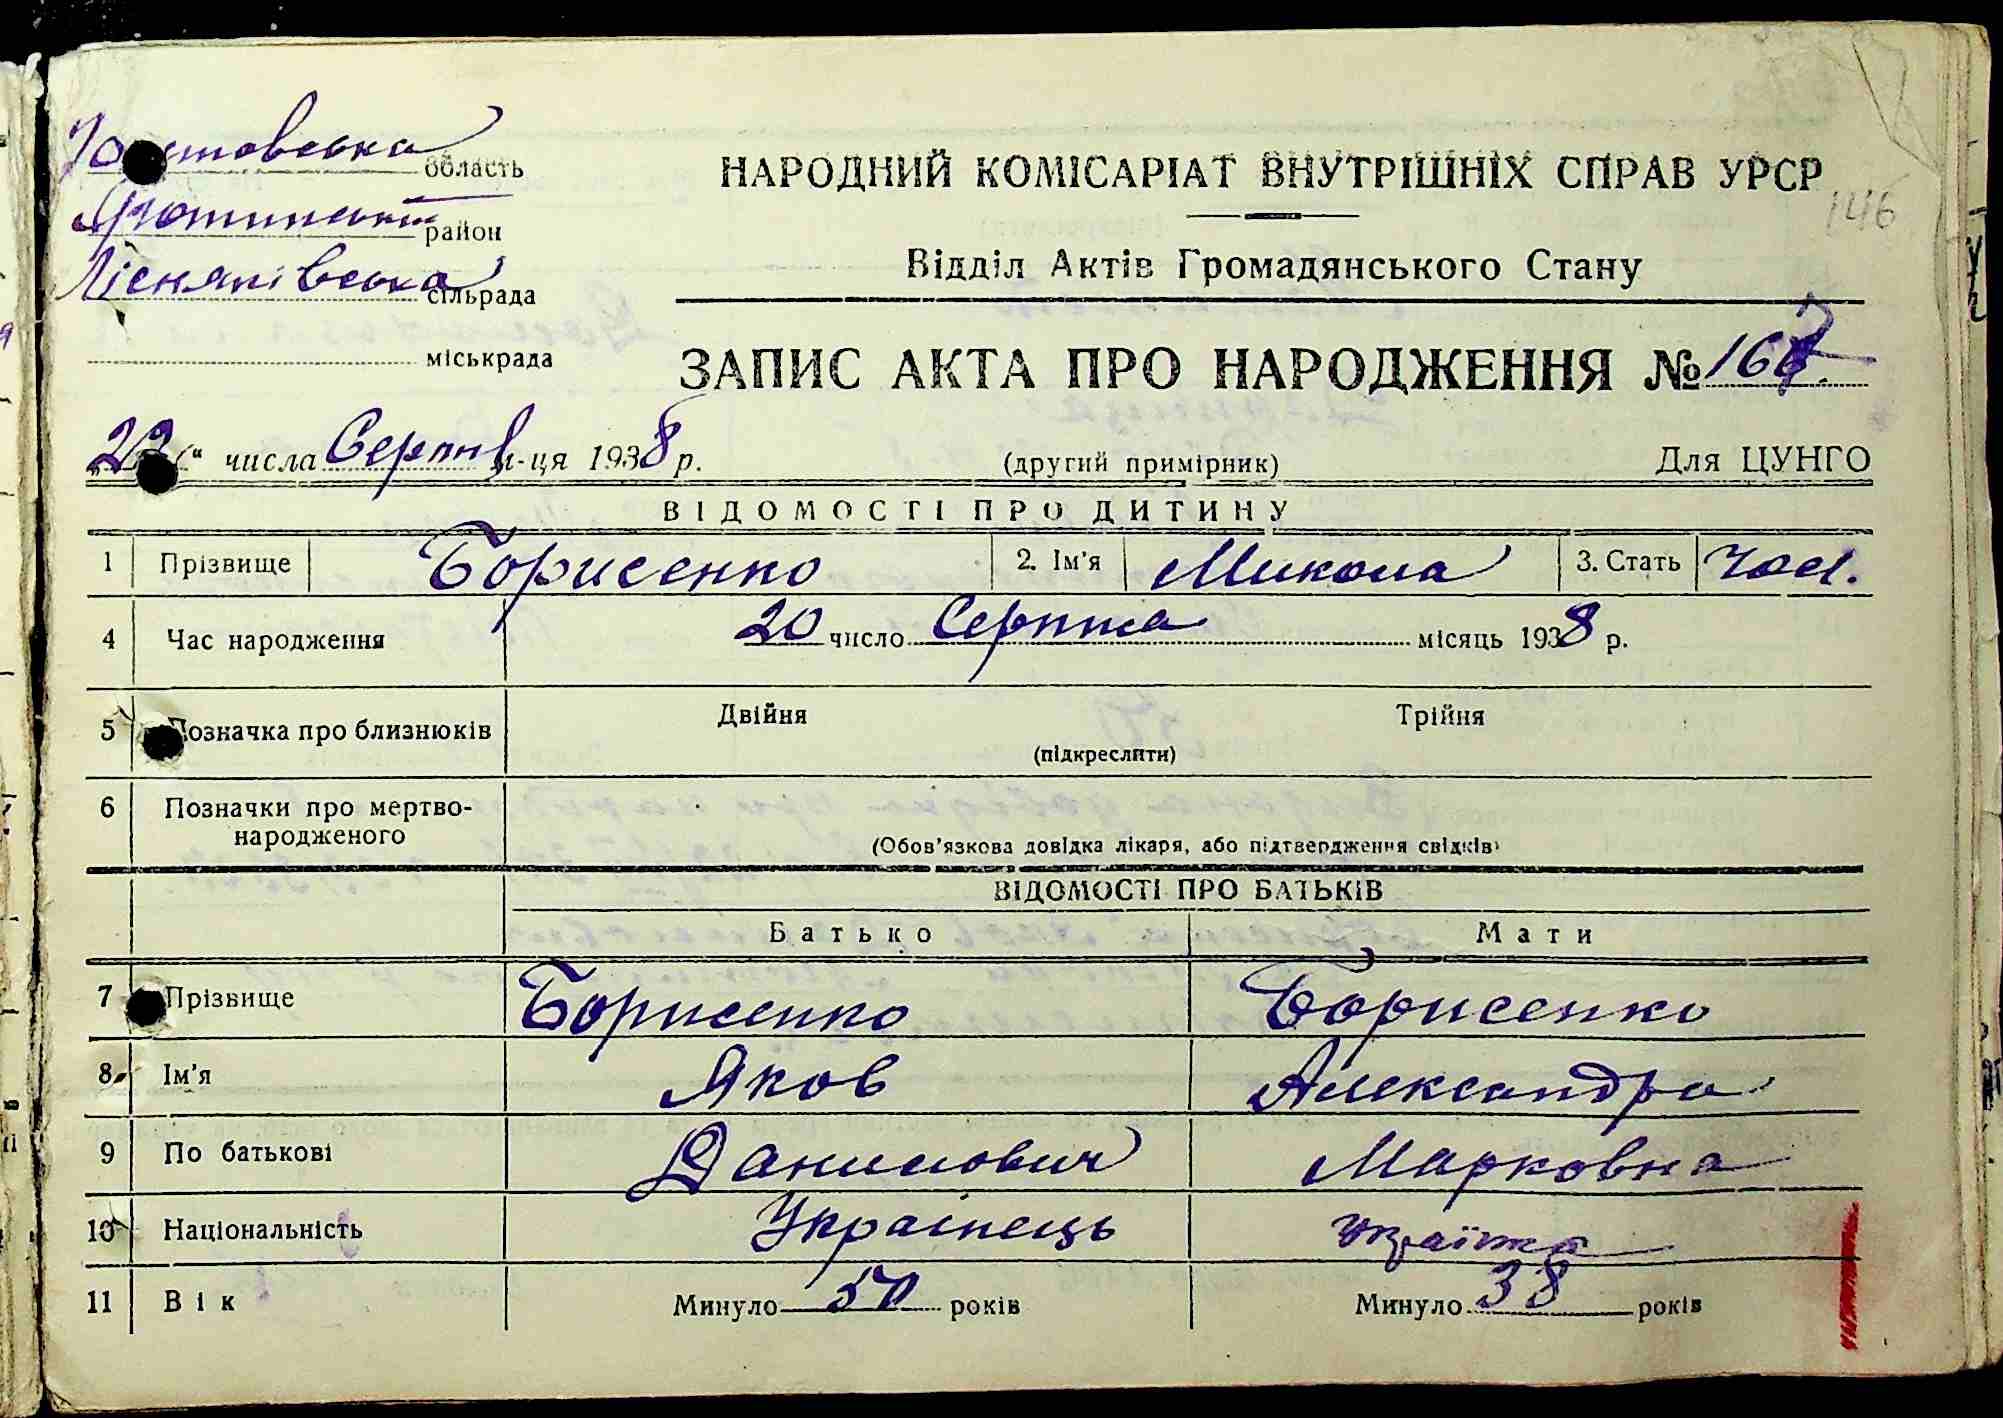 область
Яготинський район
Лісняківська сільрада
міськрада
146
НАРОДНИЙ КОМІСАРІАТ ВНУТРІШНІХ СПРАВ УРСР
Відділ Актів Громадянського Стану
ЗАПИС АКТА ПРО НАРОДЖЕННЯ №
числа Серпня м-ця 1938 р.
(другий примірник)
Для ЦУНГО
ВІДОМОСТІ ПРО ДИТИНУ
1 Прізвище Борисенко 2. Ім'я Микола 3. Стать чол.
4 Час народження 20 число Серпня місяць 1938 р.
5 Позначка про близнюків Двійня Трійня
(підкреслити)
6 Позначки про мертвонародженого
(Обов'язкова довідка лікаря, або підтвердження свідків)
ВІДОМОСТІ ПРО БАТЬКІВ
Батько Мати
7 Прізвище Борисенко Борисенко
8 Ім'я Яков Александра
9 По батькові Данилович Марковна
10 Національність Українець українка
11 Вік Минуло 50 років Минуло 38 років